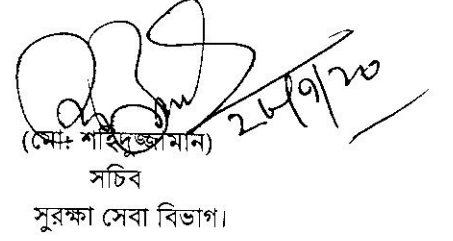 ২৮/৭/২০
(মো: শহিদুজ্জামান)
সচিব
সুরক্ষা সেবা বিভাগ।